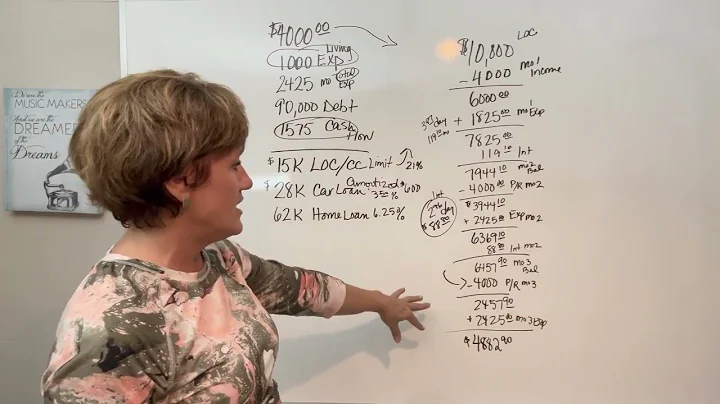 We are the
MUSIC MAKERS
And we are the
DREAMERS
of the
Dreams
$4000.00
1000 Living Exp
2425 mo total Exp
90,000 Debt
1575 Cash flow
$15K LOC/CC Limit 21%
$28K Car Loan Amortized 3.50% $600
62K Home Loan 6.25%
LOC
$10,000
- 4000 mo 1 Income
6000.00
+ 1825.00 mo 1 Exp
7825.00
119.10 Int
7944.10 mo 2 Bal
- 4000.00 P/R mo 2
$3944.10
+ 2425.00 Exp mo 2
6369.10
88.80 Int mo 2
6457.90 mo 3 Bal
- 4000 P/R mo 3
2457.90
+ 2425.00 mo 3 Exp
$4882.90
Int
$88.80